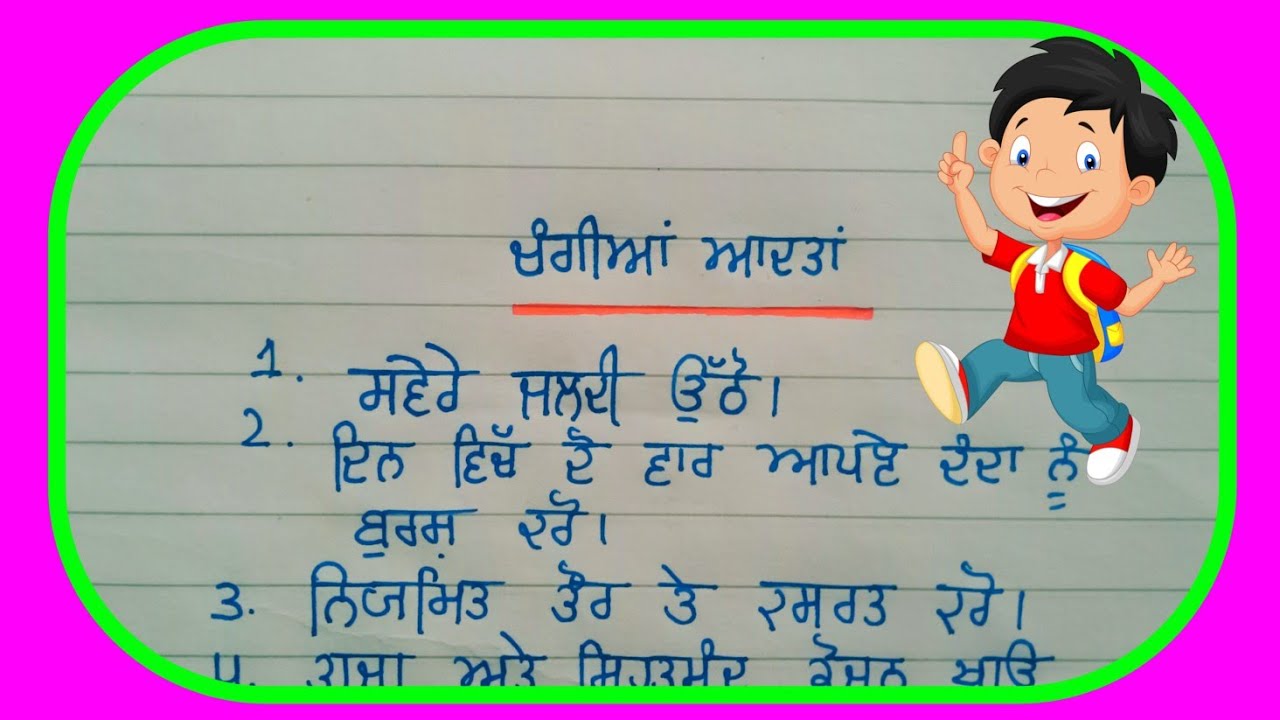 ਚੰਗੀਆਂ ਆਦਤਾਂ
1. ਸਵੇਰੇ ਜਲਦੀ ਉੱਠੋ।
2. ਦਿਨ ਵਿੱਚ ਦੋ ਵਾਰ ਆਪਣੇ ਦੰਦਾ ਨੂੰ
ਬੁਰਸ਼ ਕਰੋ।
3. ਨਿਯਮਿਤ ਤੌਰ ਤੇ ਕਸਰਤ ਕਰੋ।
ਤਾਜਾ ਅਤੇ ਸਿਹਤਮੰਦ ਭੋਜਨ